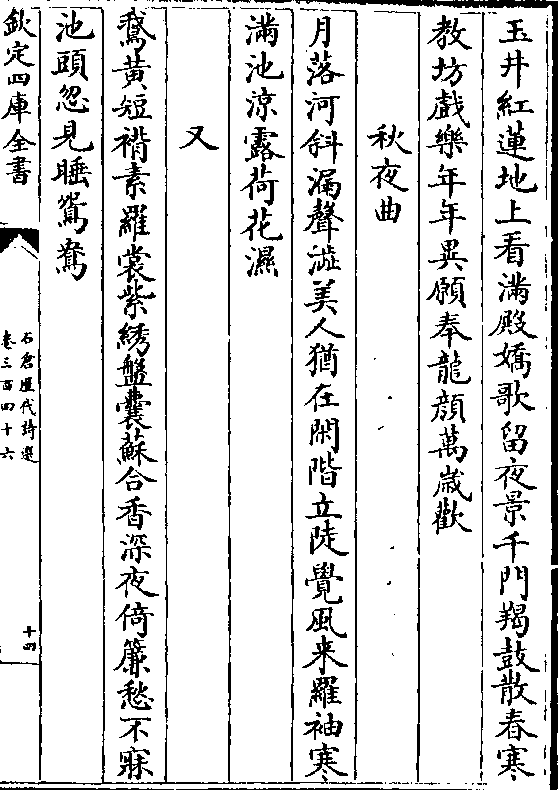 玉井紅蓮地上看滿殿嬌歌留夜景千門羯鼓散春寒
教坊戲樂年年異願奉龍顔萬歲歡
秋夜曲
月落河斜漏聲澁美人猶在閑階立陡覺風来羅袖寒
滿池涼露荷花濕
又
鵞黄短褙素羅裳紫綉盤囊蘇合香深夜倚簾愁不寐
池頭忽見睡鴛鴦
欽定四庫全書
石倉歷代詩選
卷三百四十六
十四